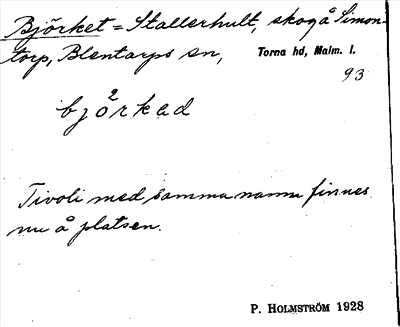 Björket = Stallerhult, skog å Simon-
torp, Blentarps sn, Torna hd, Malm. l.
93
bjö²rkad
Tivoli med samma namn finnes
nu å platsen.
P. HOLMSTRÖM 1928